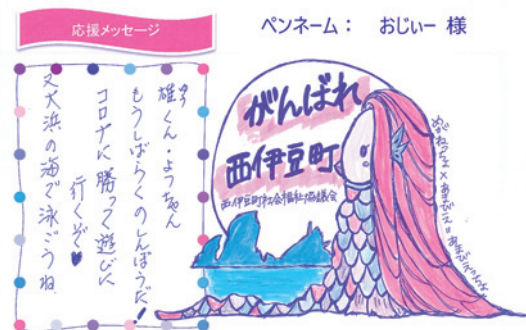 応援メッセージ
ペンネーム： おじぃー 様
雄くん・よっちゃん
もうしばらくのしんぼうだ！
コロナに勝って遊びに
行くぞ♥
又大浜の海で泳ごうね
がんばれ
西伊豆町
西伊豆町社会福祉協議会